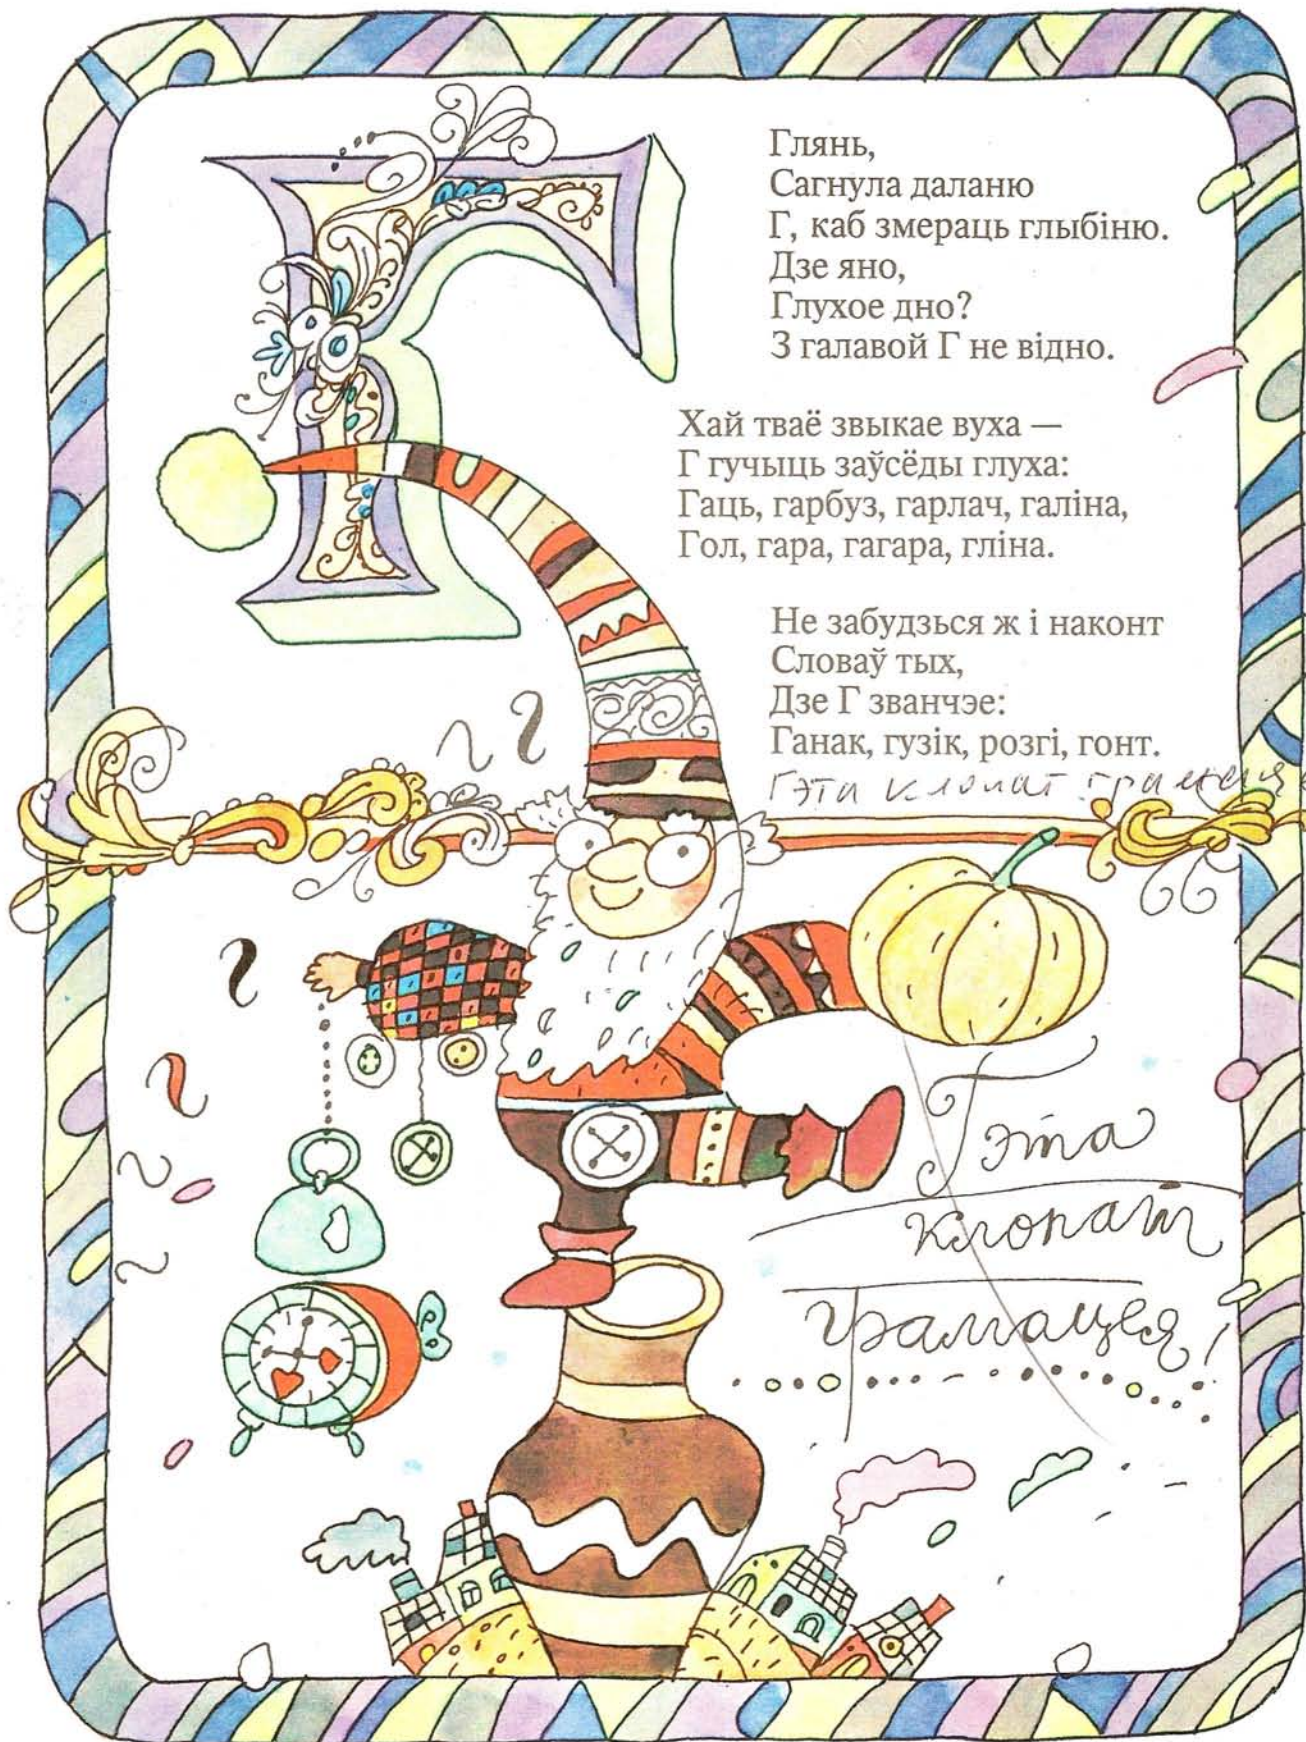 Глянь,
Сагнула даланю
Г, каб змераць глыбіню.
Дзе яно,
Глухое дно?
З галавой Г не відно.
Хай тваё звыкае вуха —
Г гучыць заўсёды глуха:
Гаць, гарбуз, гарлач, галіна,
Гол, гара, гагара, гліна.
Не забудзься ж і наконт
Словаў тых,
Дзе Г званчэе:
Ганак, гузік, розгі, гонт.
Гэта клопат грамацея
Гэта
клопат
грамацея!